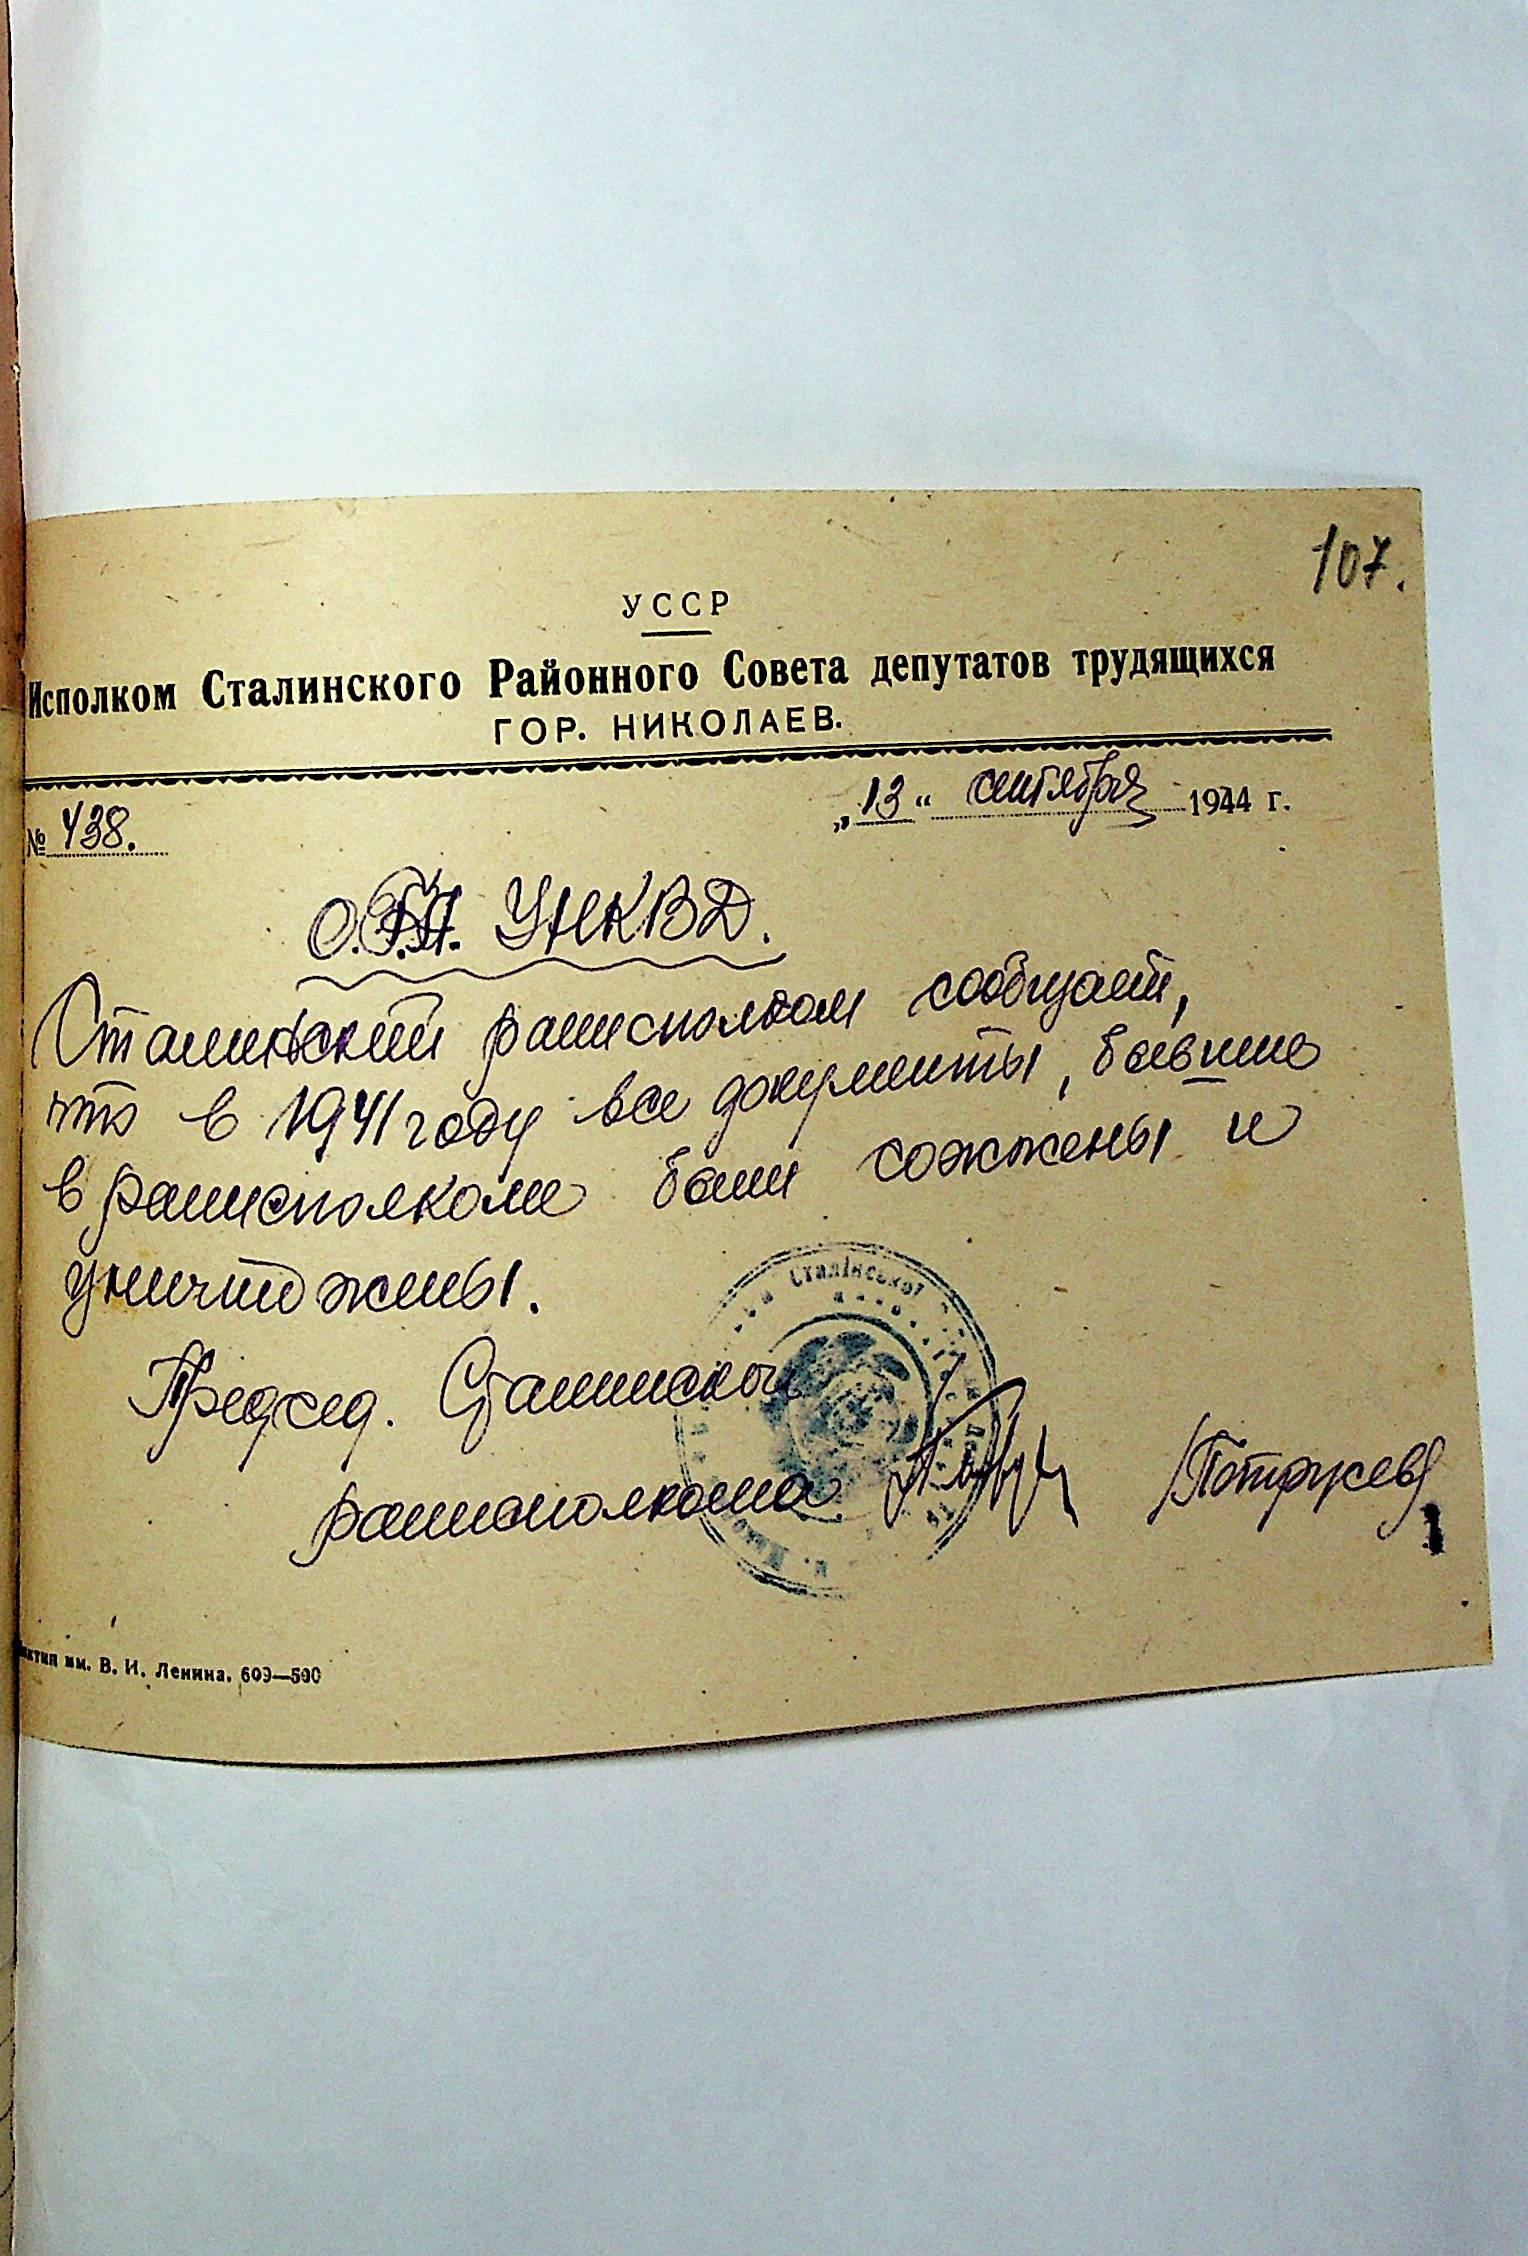 107.
УССР
Исполком Сталинского Районного Совета депутатов трудящихся
ГОР. НИКОЛАЕВ.
№ 438.
„13“ сентября 1944 г.
УНКВД.
Сталинский райисполком сообщает,
что в 1941 году все документы, бывшие
в райисполкоме были сожжены и
уничтожены.
Председ. Сталинского
райисполкома
Сталінської
им. В. И. Ленина. 609—500